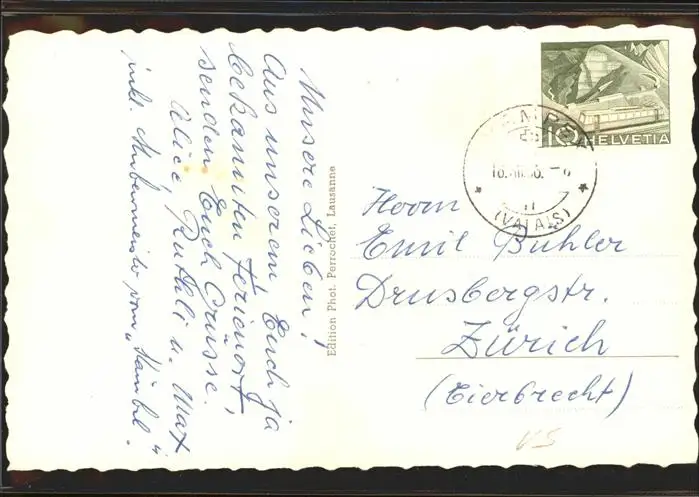 Unsere Lieben!
Aus unserem Euch ja
bekannten Ferienort,
senden Euch Grüsse.
Alice, Ruthli u. Max
inkl.
Edition Phot. Perrochet, Lausanne
10 HELVETIA
(VALAIS)
Herrn
Emil Bühler
Drusbergstr.
Zürich
(Eierbrecht)
VS